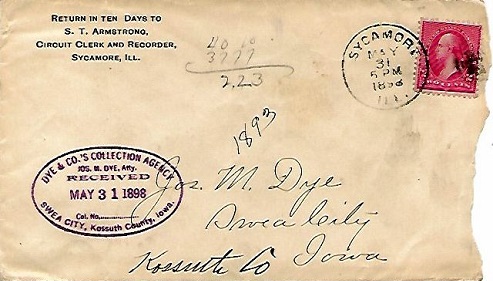 RETURN IN TEN DAYS TO
S. T. ARMSTRONG,
CIRCUIT CLERK AND RECORDER,
SYCAMORE, ILL.
40 10
3777
2,23
SYCAMORE
MAY
31
5 PM
1898
ILL.
TWO CENTS
1893
DYE & CO.'S COLLECTION AGENCY
JOS. M. DYE, Atty.
RECEIVED
MAY 31 1898
Col. No.
SWEA CITY, Kossuth County, Iowa.
Jos. M. Dye
Swea City
Kossuth Co Iowa